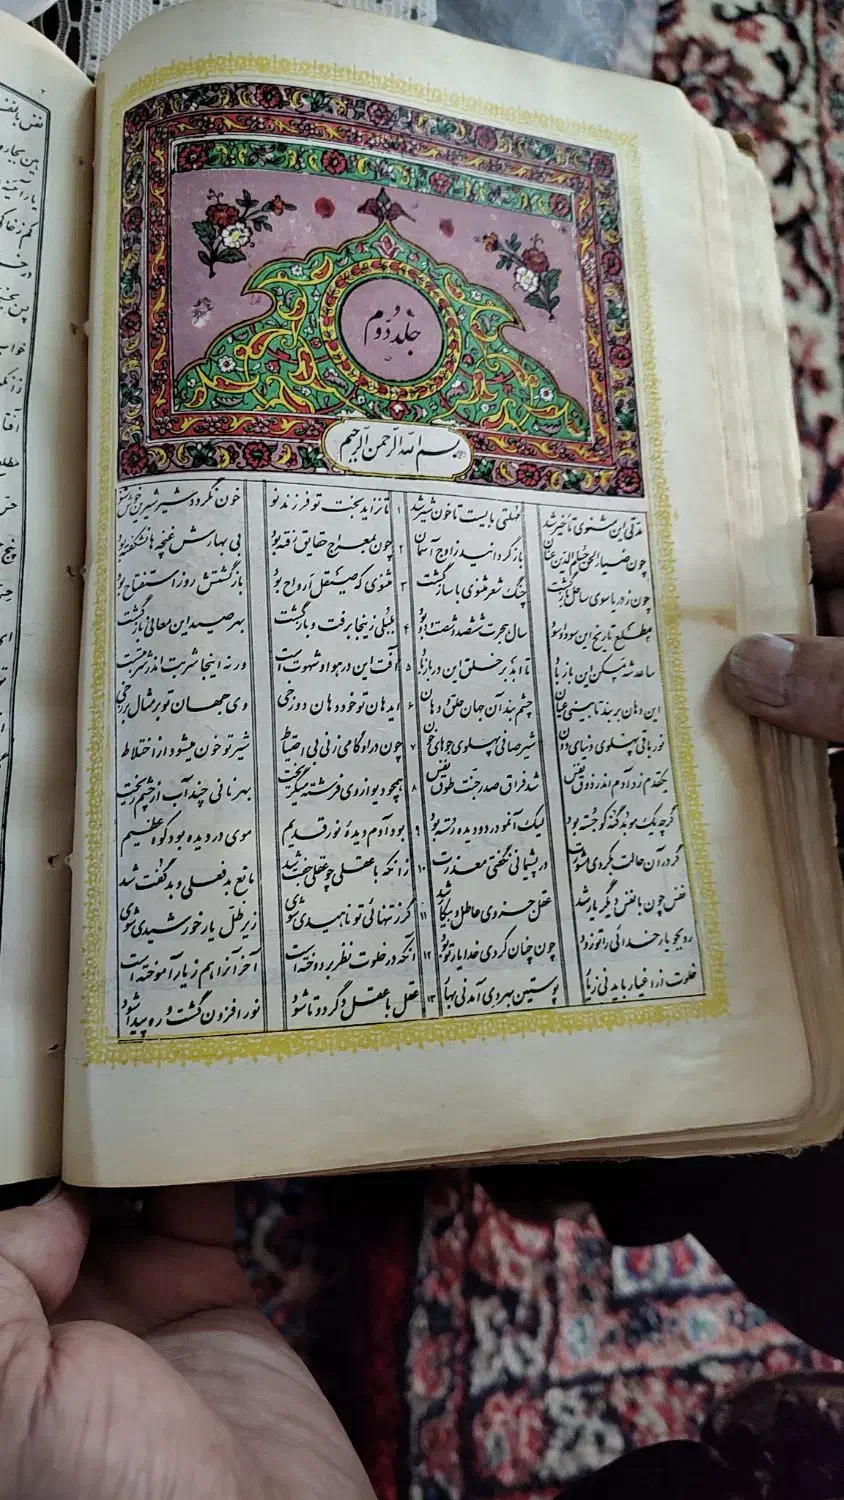 جلد دوم
بسم الله الرحمن الرحیم
مدتی این مثنوی تأخیر شد مهلتی بایست تا خون شیر شد ۱ تا نزاید بخت تو فرزند نو خون نگردد شیر شیرین خوش شنو
چون ضیاءالحق حسام الدین عنان باز گردانید ز اوج آسمان ۲ چون بمعراج حقایق رفته بود بی بهارش غنچه ها نشکفته بود
چون ز دریا سوی ساحل بازگشت چنگ شعر مثنوی با ساز گشت ۳ مثنوی که صیقل ارواح بود بازگشتش روز استفتاح بود
مطلع تاریخ این سودا و سود سال هجرت ششصد و شصت و دو بود ۴ بلبلی زینجا برفت و بازگشت بهر صید این معانی بازگشت
ساعد شه مسکن این باز باد تا ابد بر خلق این در باز باد ۵ آفت این در هوا و شهوت است ورنه اینجا شربت اندر شربت است
این دهان بربند تا بینی عیان چشم بند آن جهان حلق و دهان ۶ ای دهان تو خود دهان دوزخی وی جهان تو بر مثال برزخی
نور باقی پهلوی دنیای دون شیر صافی پهلوی جوهای خون ۷ چون درو گامی زنی بی احتیاط شیر تو خون میشود از اختلاط
یکقدم زد آدم اندر ذوق نفس شد فراق صدر جنت طوق نفس ۸ همچو دیو از وی فرشته میگریخت بهر نانی چند آب از چشم ریخت
گرچه یک مو بد گنه کو جسته بود لیک آنمو در دو دیده رسته بود ۹ بود آدم دیدهٔ نور قدیم موی در دیده بود کوه عظیم
گر در آن حالت بکردی مشورت در پشیمانی نگفتی معذرت ۱۰ زانکه با عقلی چو عقلی جفت شد مانع بد فعلی و بد گفت شد
نفس چون با نفس دیگر یار شد عقل جزوی عاطل و بیکار شد ۱۱ گر ز تنهائی تو ناهیدی شوی زیر ظل یار خورشیدی شوی
رو بجو یار خدائی را تو زود چون چنان کردی خدا یار تو بود ۱۲ آنکه در خلوت نظر بر دوخته است آخر آنرا هم ز یار آموخته است
خلوت از اغیار باید نی ز یار پوستین بهر دی آمد نی بهار ۱۳ عقل با عقل دگر دو تا شود نور افزون گشت و ره پیدا شود